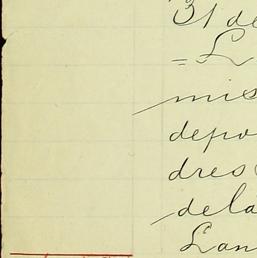 31 de
= L
mis
depo
dres
dela
Lan